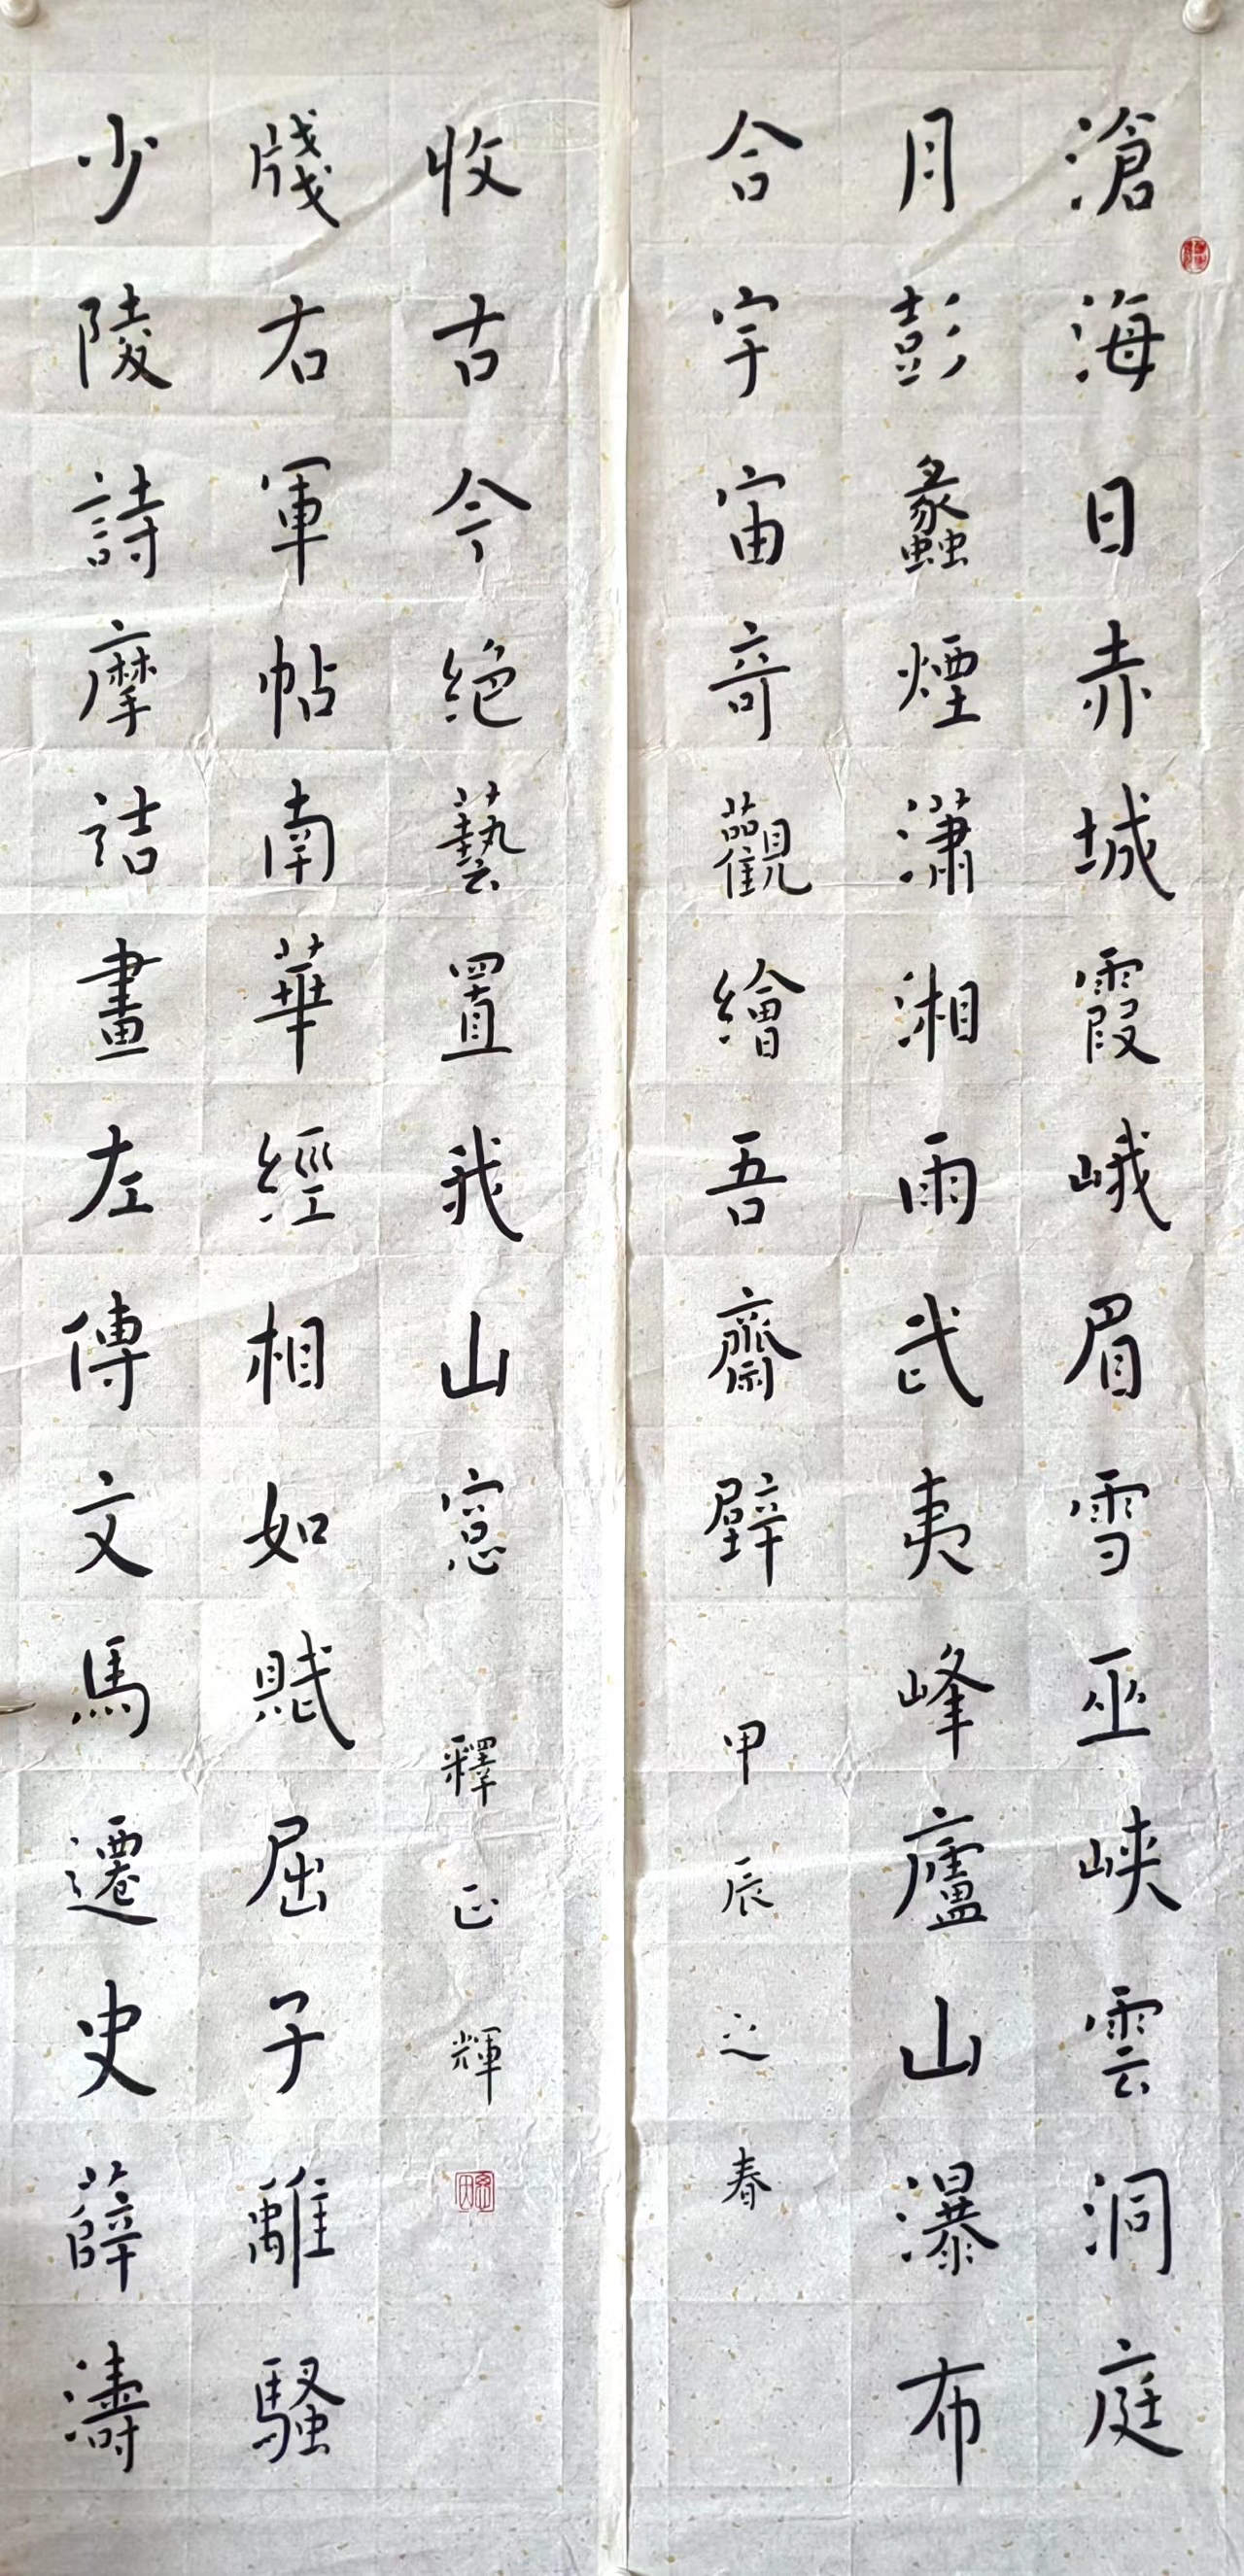 滄海日赤城霞峨眉雪巫峽雲洞庭
月彭蠡煙瀟湘雨武夷峰廬山瀑布
合宇宙奇觀繪吾齋壁
甲辰之春
少陵詩摩詰畫左傳文馬遷史薛濤
牋右軍帖南華經相如賦屈子離騷
收古今絕藝置我山窓
釋正輝